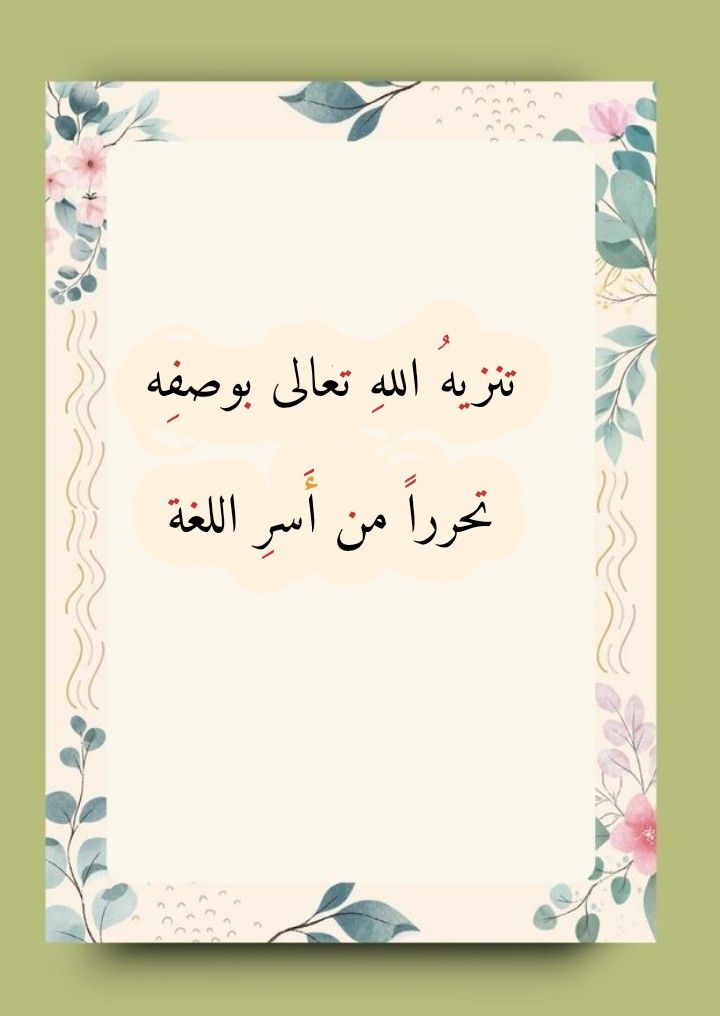 تنزيهُ اللهِ تعالى بوصفِه
تحرراً من أَسرِ اللغة